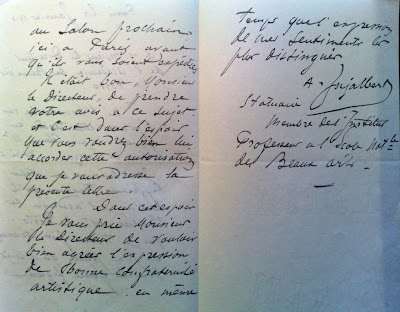 au Salon prochain
ici a Paris avant
qu'ils vous soient expédiés
Il était bon, Monsieur
le Directeur, de prendre
votre avis à ce sujet
et c'est dans l'espoir
que vous voudrez bien lui
accorder cette autorisation
que je vous adresse la
présente lettre.
Dans cet espoir
Je vous prie Monsieur
le Directeur de vouloir
bien agréer l'expression
de bonne confraternité
artistique en même
temps que l'expression
de mes sentiments les
plus distingués
A. Injalbert
Statuaire
Membre de l'Institut
Professeur a l'Ecole Nat.le
des Beaux arts -